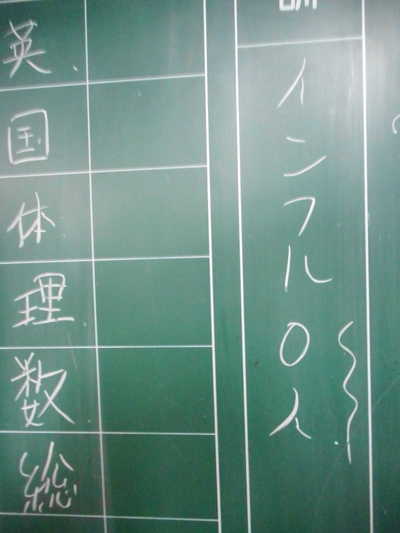 インフル0人
英
国
体
理
数
総